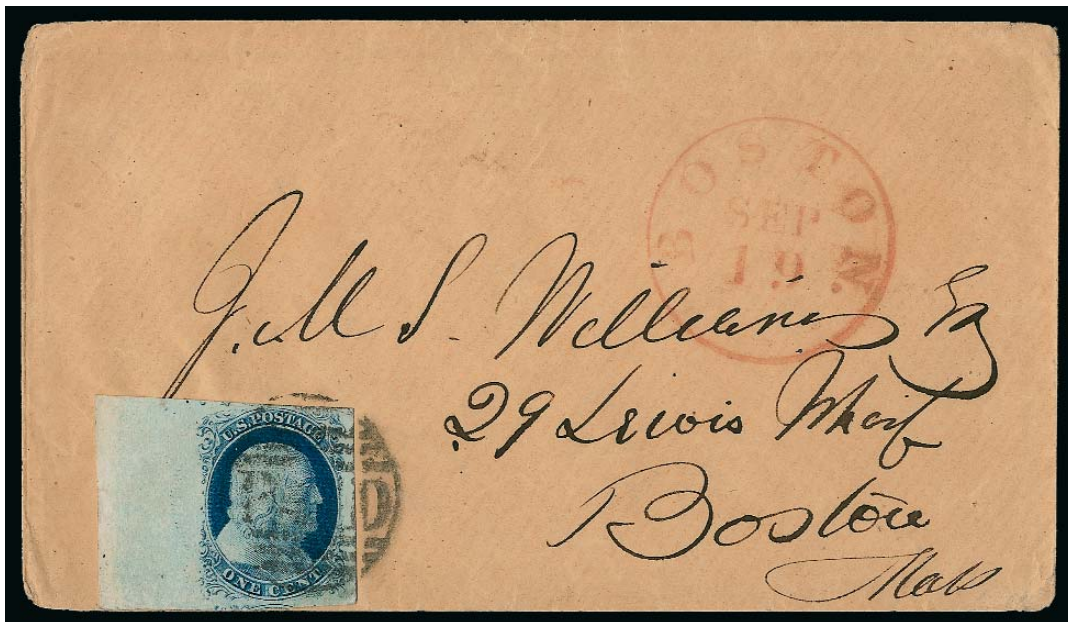 BOSTON.
SEP
19
J. M S. Williams Esq
29 Lewis Wharf
Boston
Mass
U.S. POSTAGE
PAID
ONE CENT.